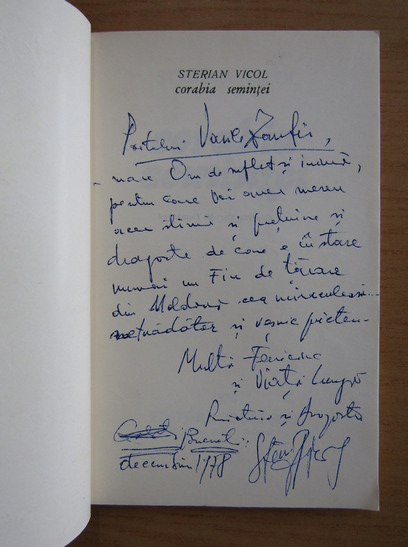 STERIAN VICOL
corabia seminței
Poetului Vasile Zamfir,
mare Om de suflet și inimă,
pentru care voi avea mereu
acea stimă și prețuire și
dragoste de care e în stare
numai un Fiu de țărani
din Moldova cea miraculoasă
și veșnic
Multă Fericire
și Viață Lungă
Prietenia și dragostea
București,
decembrie 1978